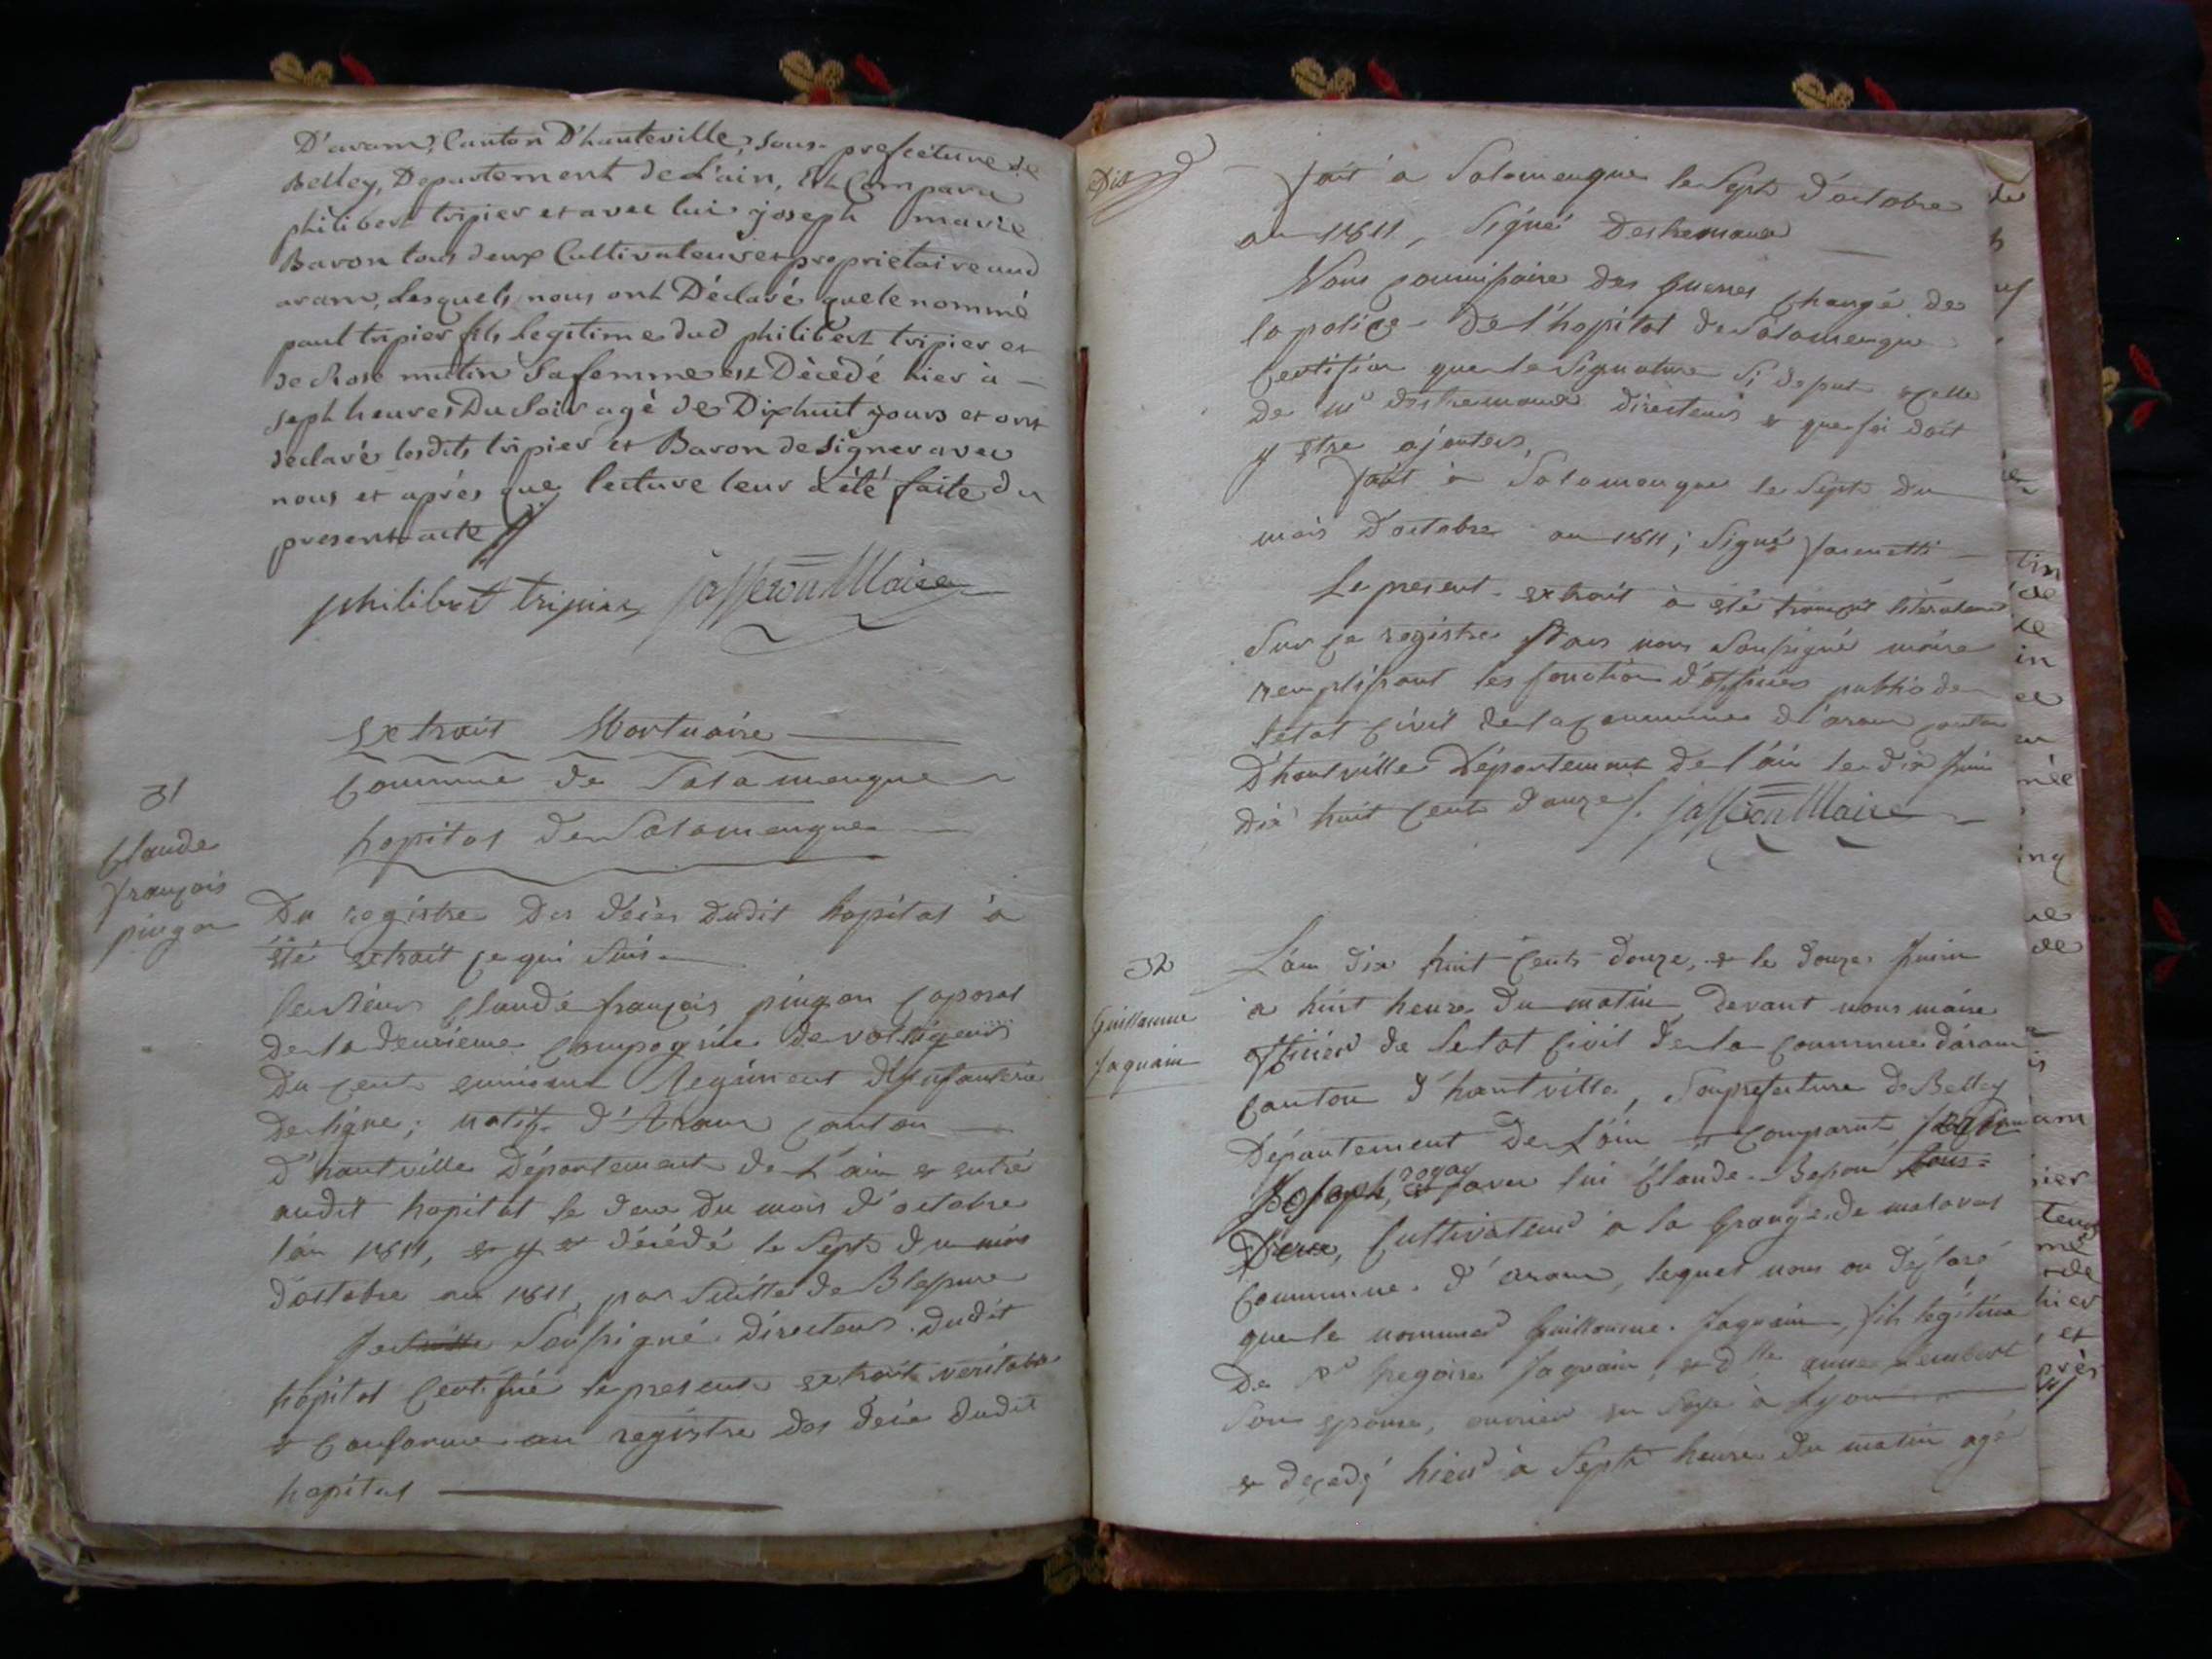 D'aram, Canton D'hauteville, Sous-prefecture de
Belley, Departement de L'ain, Est Comparu
philibert tripier et avec lui joseph marie
Baron tous deux Cultivateurs et proprietaire aud
aram, Lesquels nous ont Déclaré que le nommé
paul tripier fils Legitime dud philibert tripier et
de Rose mutin Sa femme est Dècedé hier à
sept heures Du Soir agé de Dixhuit jours et ont
declaré lesdits tripier et Baron de Signer avec
nous et aprés que lecture leur à été faite du
present acte
philibert tripier jasseron Maire
Extrait Mortuaire
Commune de Salamenque
hopital de Salamenque
31
Claude
françois
pingon
Du registre des décés dudit hopital à
été extrait ce qui suis
le sieur Claude françois pingon Caporal
de la deuxieme Compagnie de voltigeurs
du cent Regiment d'infanterie
de ligne; natif d'Aram Canton
d'hautville Département de L'ain & entré
audit hopital le deux du mois d'octobre
l'an 1811, & y est décédé le Sept du mois
d'octobre an 1811, par Suitte de Blessure
Je Soussigné directeur dudit
hopital Certifié le present extrait veritable
& Conforme au registre des décés dudit
hopital
Dix
fait à Salamenque le Sept d'octobre
an 1811, Signé Destremaux
Nous Commissaire des guerres Chargé de
la police de l'hopital de Salamenque
Certifion que la Signature si deput celle
de mr destremaux directeur & que foi doit
y être ajouters,
fait à Salamenque le Sept du
mois d'octobre an 1811; Signé
Le present extrait à été transcrit literalement
Sur ce registre par nous Soussigné maire
remplissant les fonction d'officier public de
l'etat civil de la Commune d'aram canton
D'hautville Département de l'ain le dix Juin
dix huit cent douze jasseron Maire
32
Guillaume
Jaquain
L'an dix huit Cents douze, & le douze Juin
à huit heure du matin, devant nous maire
officier de letat Civil de la Commune d'aram
Canton d'hautville, Souprefecture de Belley
Département de L'ain & comparut
Joseph, avec lui Claude Besson tous
Deux, Cultivateur a la Grange de malaval
Commune d'aram, lequel nous on déclaré
que le nommé Guillaume Jaquain, fils légitime
De Sr Gregoire Jaquain, & dlle anne Lembert
Son epouse, ouvrier en Soye à Lyon
& decedé hier à Sept heure du matin agé